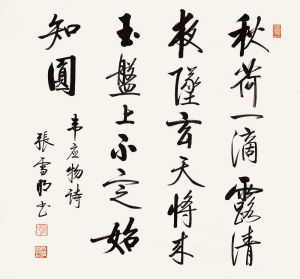 秋荷一滴露清
夜墜玄天将来
玉盤上不定始
知圓
韦应物詩
張雪明书